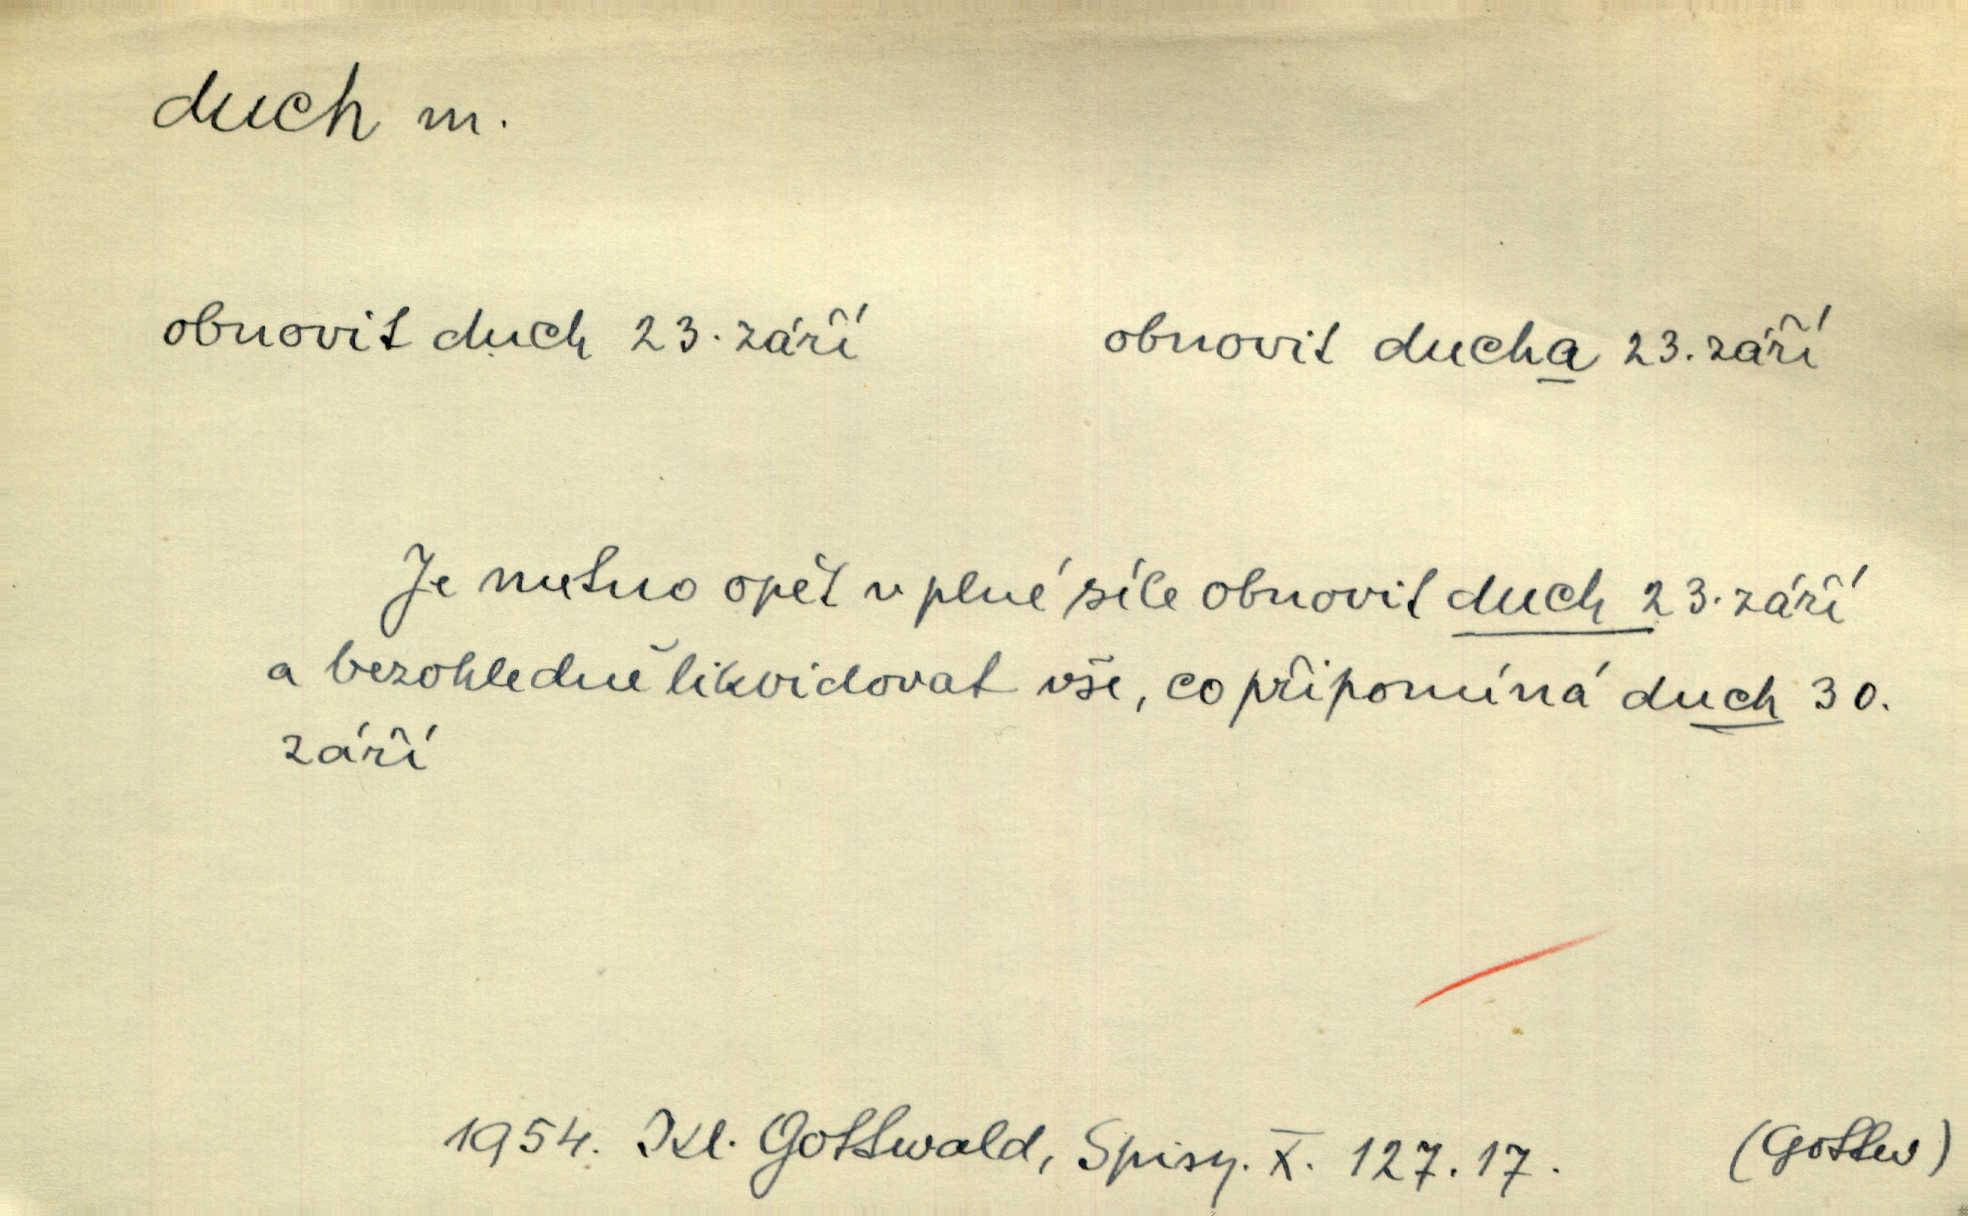 duch m.
obnovit duch 23. září obnovit ducha 23. září
Je nutno opět v plné síle obnovit duch 23. září
a bezohledně likvidovat vše, co připomíná duch 30.
září
1954. Kl. Gottwald, Spisy. X. 127. 17. (Gottw)